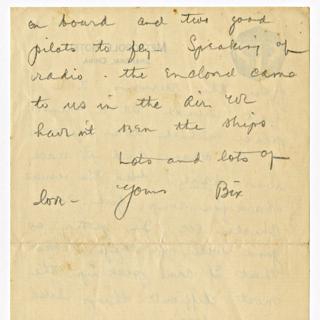 on board and two good
pilots to fly - Speaking of
radio - the enclosed came
to us in the air. We
haven't seen the ships
Lots and lots of
love - Yours Bix